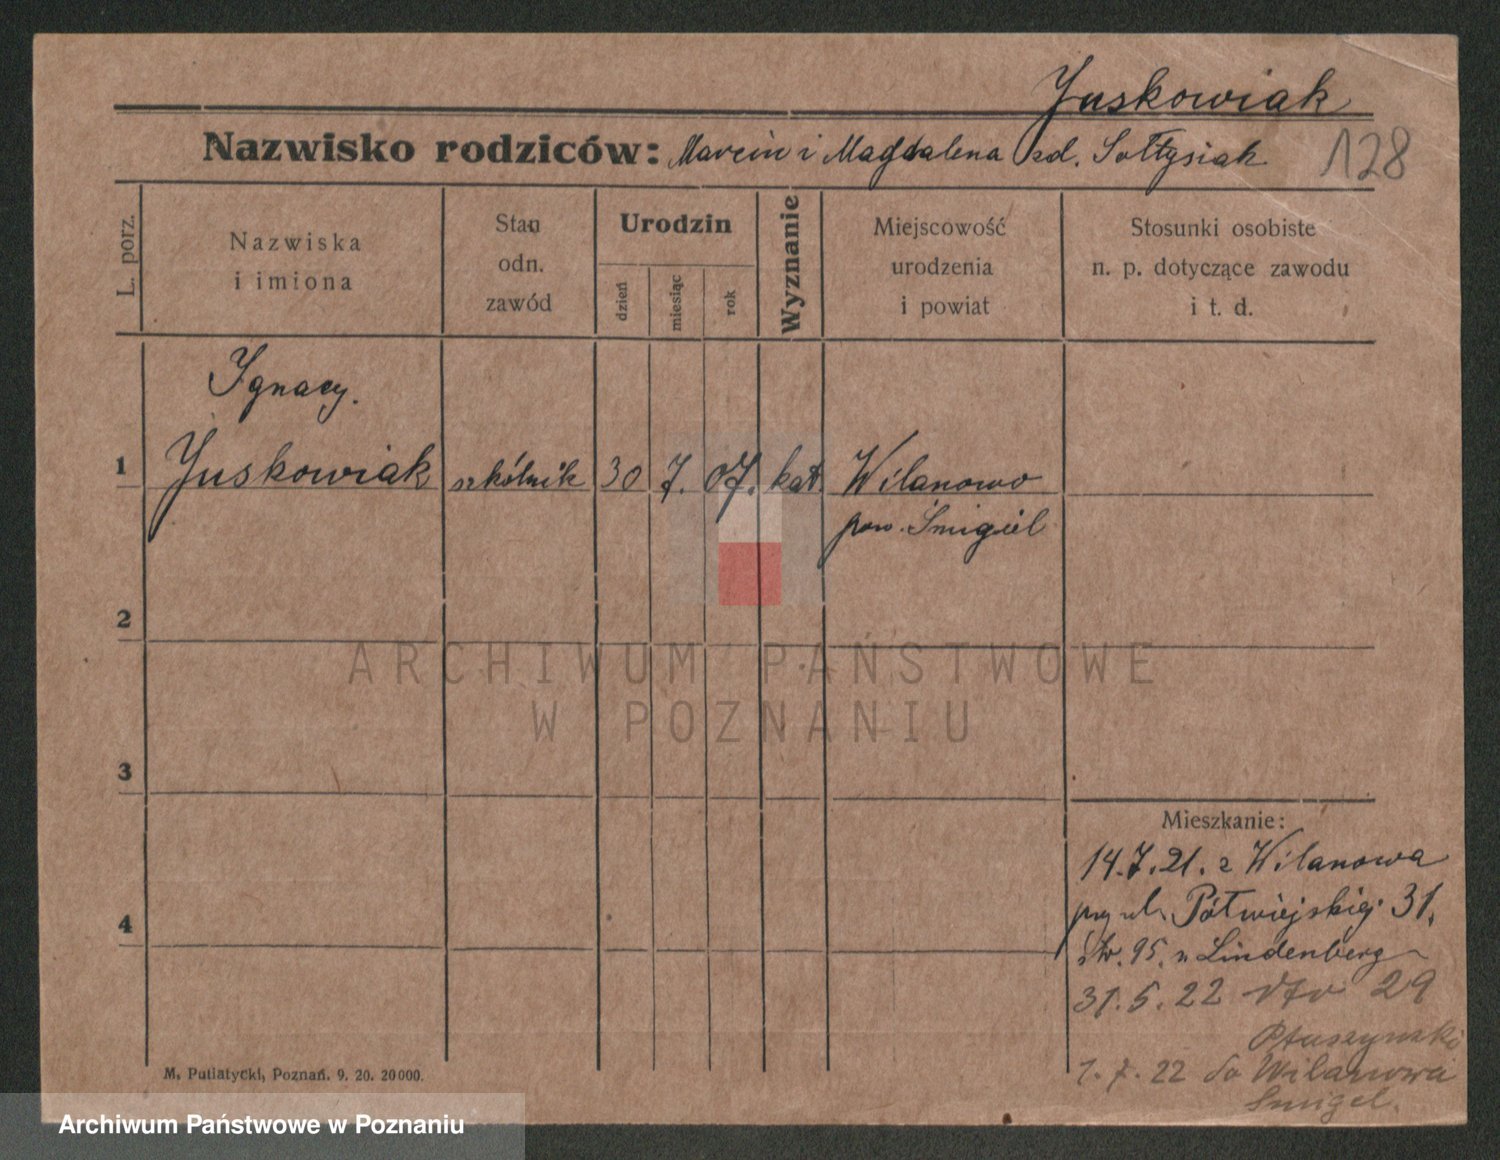 Juskowiak
Nazwisko rodziców: Marcin i Magdalena zd. Sołtysiak 128
L. porz.
Nazwiska
i imiona
Stan
odn.
zawód
Urodzin
dzień
miesiąc
rok
Wyznanie
Miejscowość
urodzenia
i powiat
Stosunki osobiste
n. p. dotyczące zawodu
i t. d.
Ignacy.
1 Juskowiak szkólnik 30 7. 07. kat Wilanowo
pow. Śmigiel
2
ARCHIWUM PAŃSTWOWE
W POZNANIU
3
Mieszkanie:
14.7.21. z Wilanowa
przy ul. Półwiejskiej 31.
4
św. 95. u Lindenberg
31.5.22 29
Ptuszynski
1.7.22 do Wilanowa
Smigel.
M. Putiatycki, Poznań. 9. 20. 20000.
Archiwum Państwowe w Poznaniu